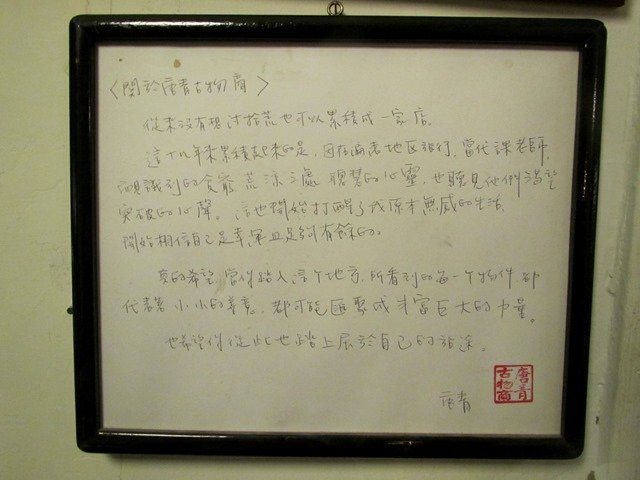 〈關於唐青古物商〉
從來沒有想過拾荒也可以累積成一家店。
這十幾年來累積起來的是，因在偏遠地區旅行，當代課老師，
所見識到的貧窮荒涼之處聰慧的心靈，也聽見他們渴望
突破的心聲。這也開始打醒了我原本無感的生活，
開始相信自己是幸運且是綽有餘的。
真的希望，當你踏入這个地方，所看到的每一个物件，都
代表著小小的善意，都可能匯聚成丰富巨大的力量。
也希望你從此也踏上屬於自己的旅途。
唐青
唐青
古物商